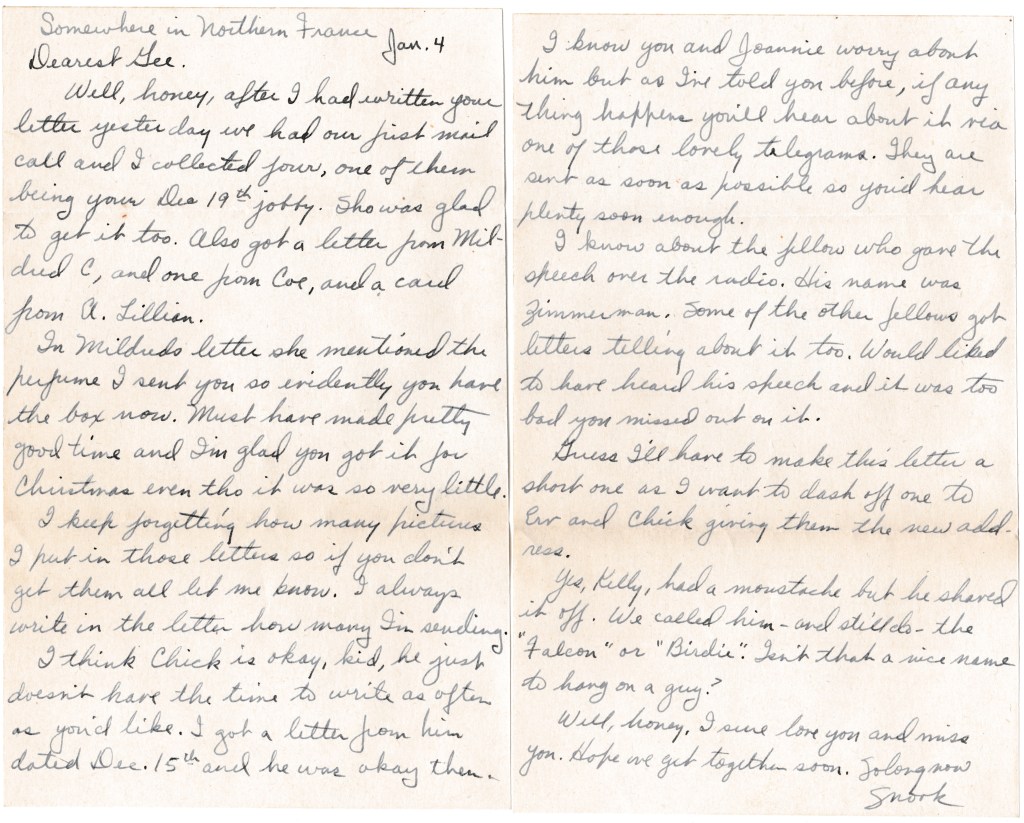 Somewhere in Northern France
Jan. 4
Dearest Gee.
Well, honey, after I had written your
letter yesterday we had our first mail
call and I collected four, one of them
being your Dec 19th jobby. Sho was glad
to get it too. Also got a letter from Mil-
dred C, and one from Coe, and a card
from A. Lillian.
In Mildreds letter she mentioned the
perfume I sent you so evidently you have
the box now. Must have made pretty
good time and I'm glad you got it for
Christmas even tho it was so very little.
I keep forgetting how many pictures
I put in those letters so if you don't
get them all let me know. I always
write in the letter how many I'm sending.
I think Chick is okay, kid, he just
doesn't have the time to write as often
as you'd like. I got a letter from him
dated Dec. 15th and he was okay then.
I know you and Joannie worry about
him but as I've told you before, if any
thing happens you'll hear about it via
one of those lovely telegrams. They are
sent as soon as possible so you'd hear
plenty soon enough.
I know about the fellow who gave the
speech over the radio. His name was
Zimmerman. Some of the other fellows got
letters telling about it too. Would liked
to have heard his speech and it was too
bad you missed out on it.
Guess I'll have to make this letter a
short one as I want to dash off one to
Erv and Chick giving them the new add-
ress.
Yes, Kelly, had a moustache but he shaved
it off. We called him - and still do - the
"Falcon" or "Birdie". Isn't that a nice name
to hang on a guy?
Well, honey, I sure love you and miss
you. Hope we get together soon. So long now
Snork